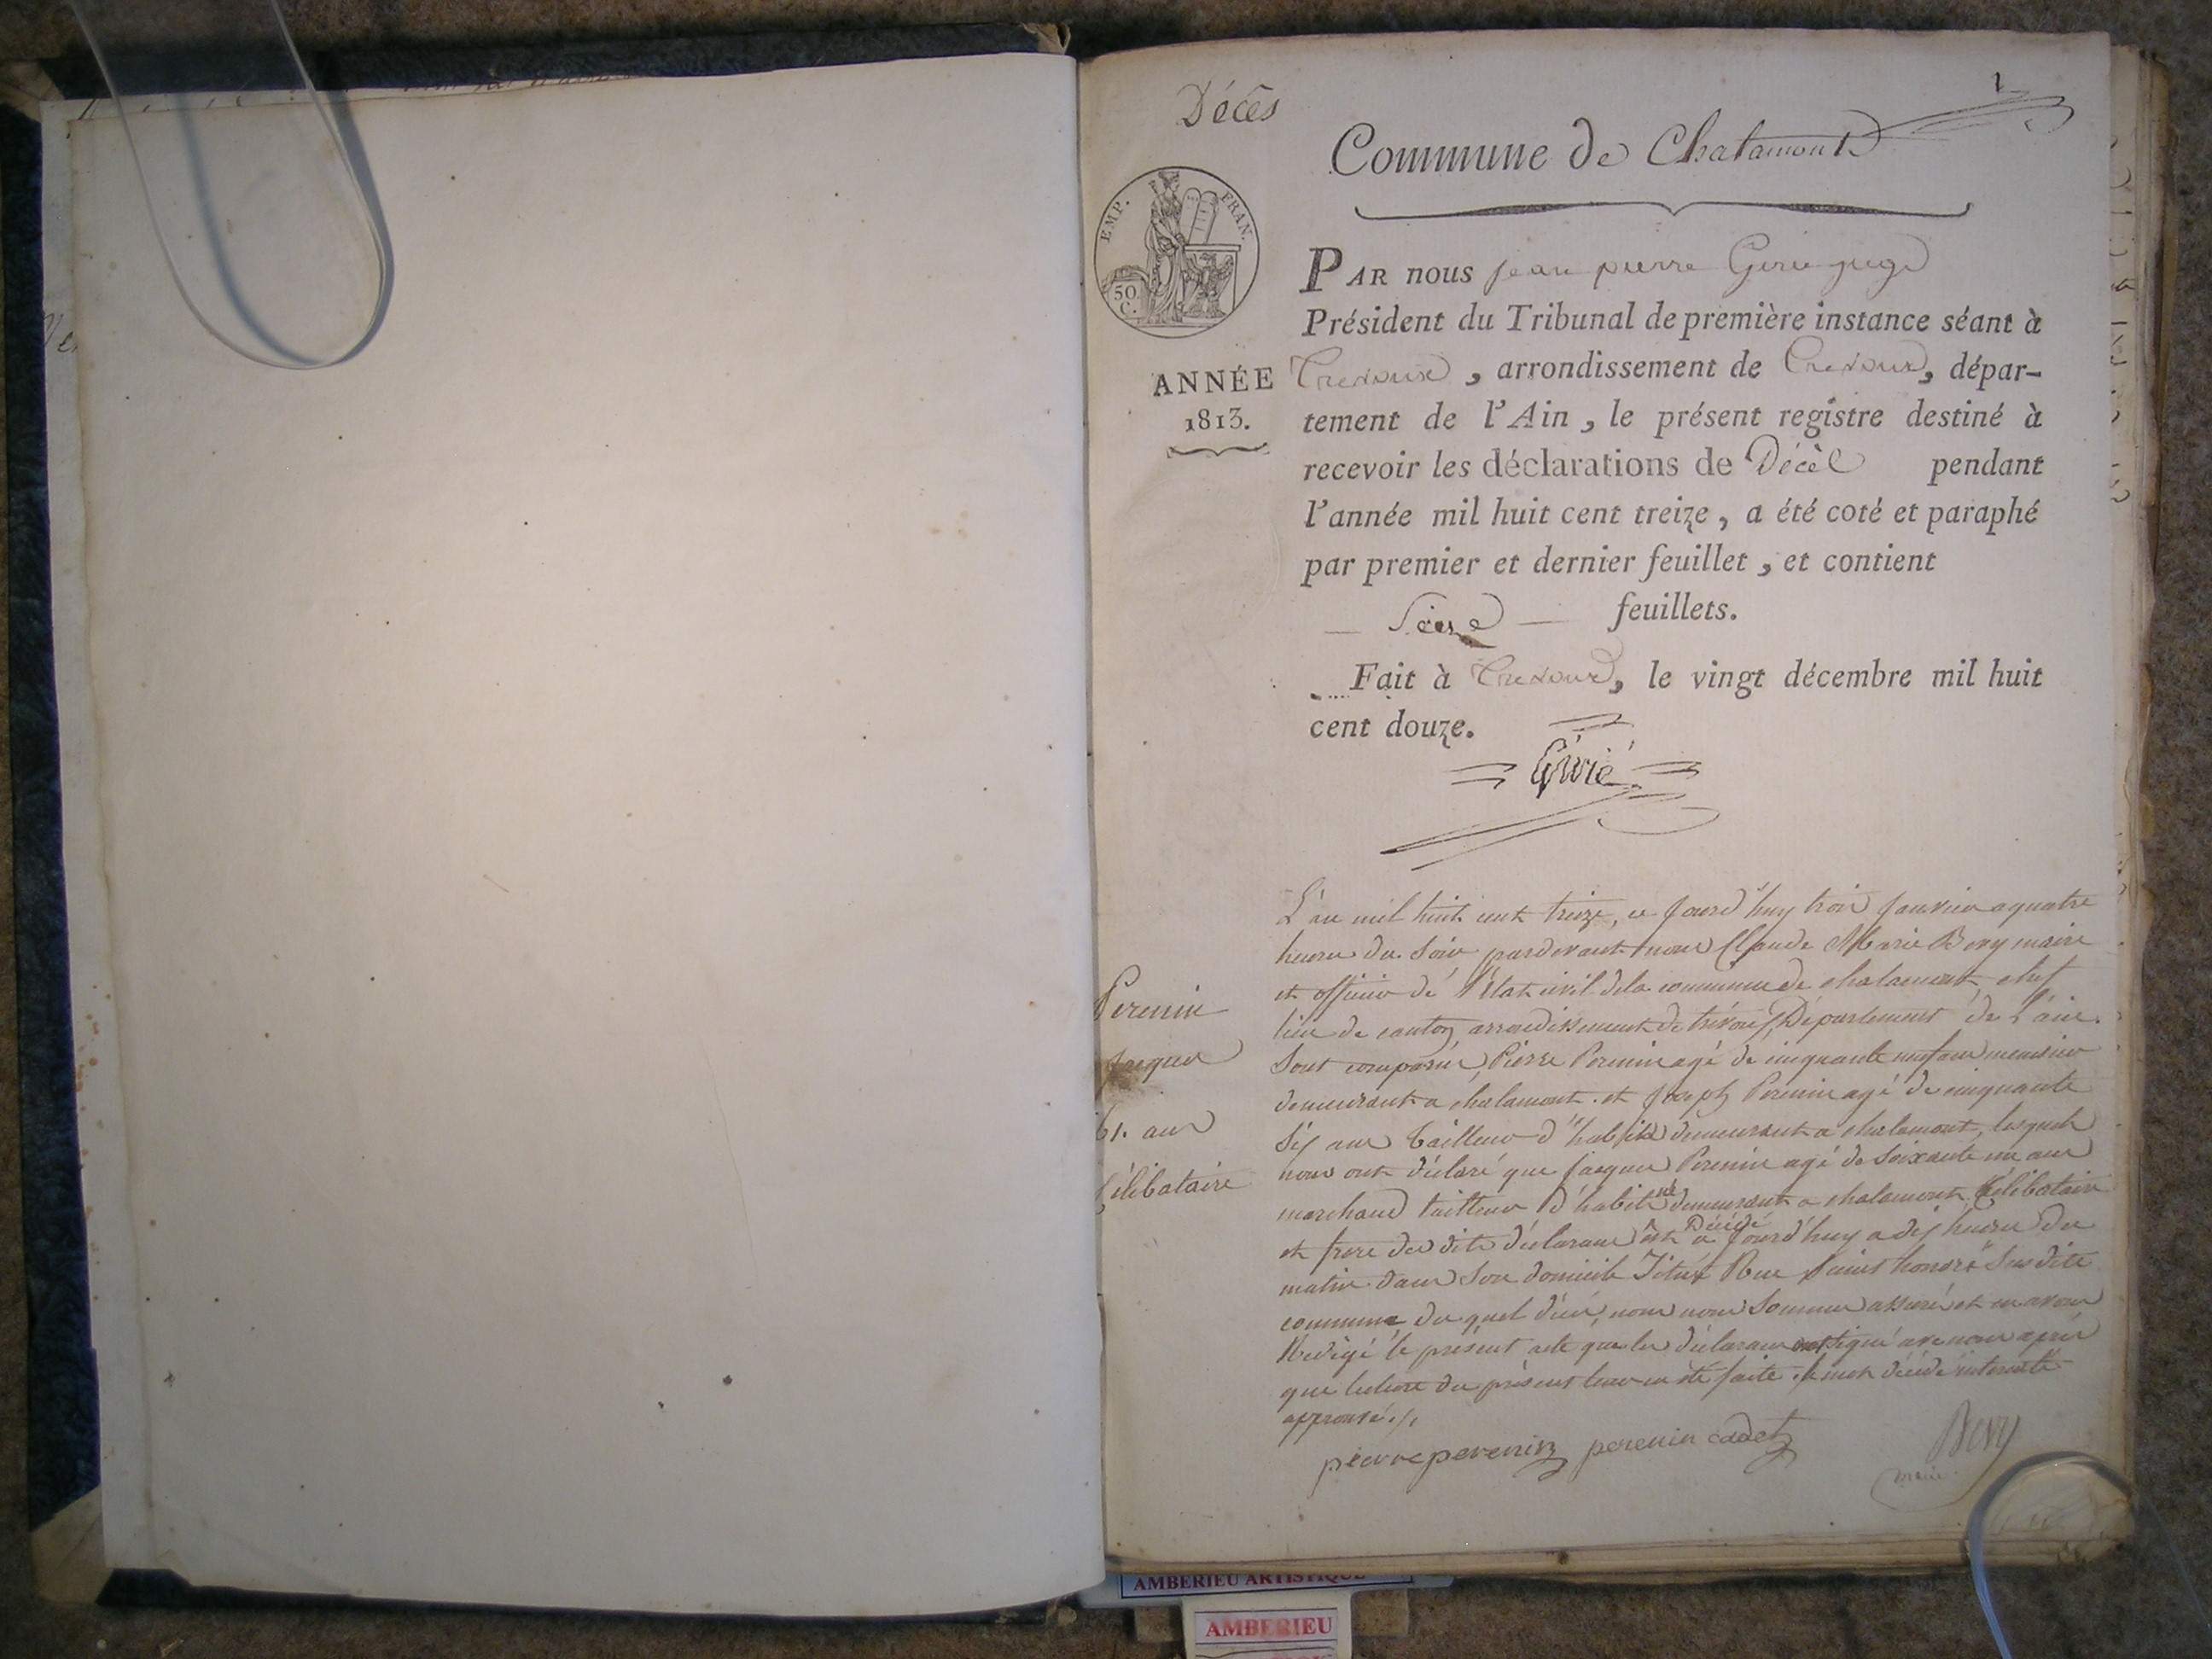 Décès
1
Commune de Chalamont
EMP. FRAN.
50
C.
ANNÉE
1813.
PAR nous jean pierre juge
Président du Tribunal de première instance séant à
Trevoux, arrondissement de Trevoux, dépar-
tement de l'Ain, le présent registre destiné à
recevoir les déclarations de Décès pendant
l'année mil huit cent treize, a été coté et paraphé
par premier et dernier feuillet, et contient
— Seize — feuillets.
Fait à Trevoux, le vingt décembre mil huit
cent douze.
Perenin
Jacques
61. ans
Célibataire
L'an mil huit cent treize, ce jourd'huy trois janvier a quatre
heures du soir pardevant nous Claude Marie Bevy maire
et officier de l'état civil dela commune de chalamont, chef
lieu de canton arrondissement de trévoux, Département de l'ain.
Sont comparus, Pierre Perenin agé de cinquante neuf ans menuisier
demeurant a chalamont. et Joseph Perenin agé de cinquante
six ans tailleur d'habits demeurant a chalamont, lesquels
nous ont déclaré que jacques Perenin agé de soixante un ans
marchand tailleur d'habits demeurant a chalamont, Célibataire
et frere des dits déclarans est Décédé ce jourd'huy a dix heures du
matin dans son domicile situé Rue Saint honoré Susdite
commune du quel décès, nous nous sommes assuré et en avons
Rédigé le présent acte que les déclarans ont signé avec nous après
que lecture du présent leur en été faite. le mot décédé interculé
approuvé ./.
pierre perenin perenin cadet Bevy
maire
AMBERIEU ARTISTIQUE
AMBERIEU